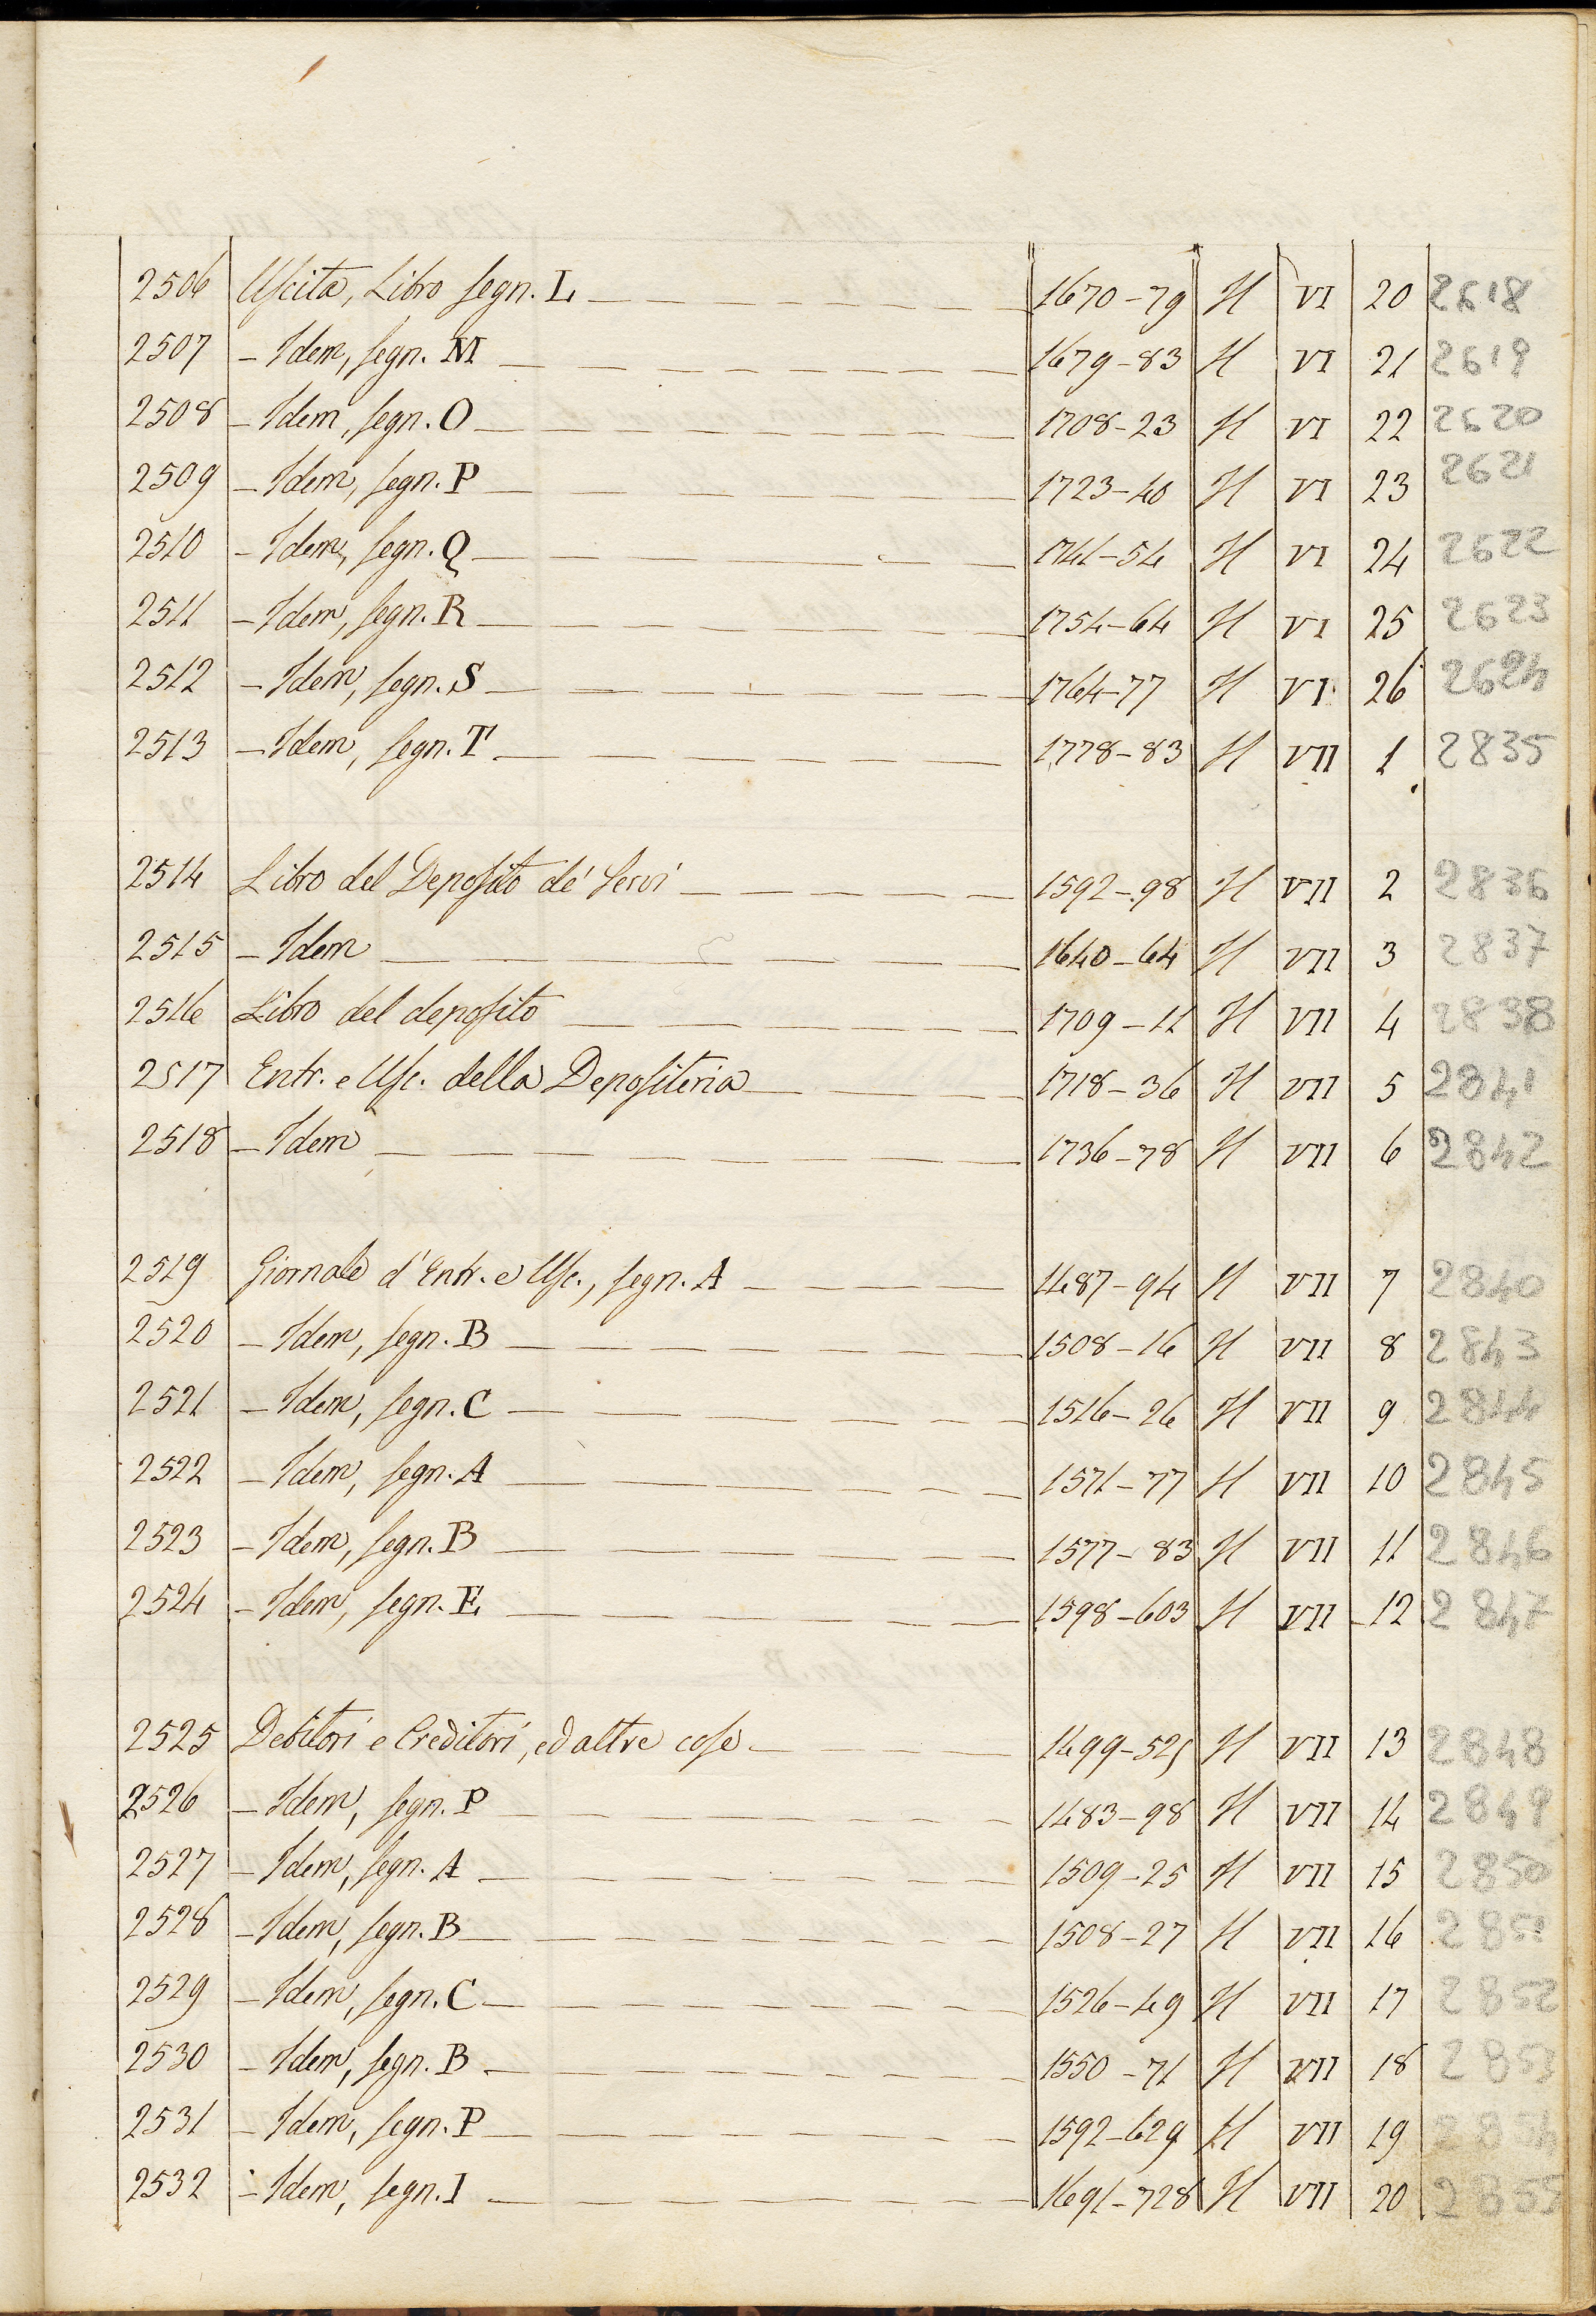 2506 Uscita, Libro segn. L 1670-79 H VI 20 2618
2507 - Idem, segn. M 1679-83 H VI 21 2619
2508 - Idem, segn. O 1708-23 H VI 22 2620
2509 - Idem, segn. P 1723-40 H VI 23 2621
2510 - Idem, segn. Q 1741-54 H VI 24 2622
2511 - Idem, segn. R 1754-64 H VI 25 2623
2512 - Idem, segn. S 1764-77 H VI 26 2624
2513 - Idem, segn. T 1778-83 H VII 1 2835
2514 Libro del Deposito de' Servi 1592-98 H VII 2 2836
2515 - Idem 1640-64 H VII 3 2837
2516 Libro del deposito 1709-11 H VII 4 2838
2517 Entr. e Usc. della Depositeria 1718-36 H VII 5 2841
2518 - Idem 1736-78 H VII 6 2842
2519 Giornale d'Entr. e Usc., segn. A 1487-94 H VII 7 2840
2520 - Idem, segn. B 1508-16 H VII 8 2843
2521 - Idem, segn. C 1516-26 H VII 9 2844
2522 - Idem, segn. A 1571-77 H VII 10 2845
2523 - Idem, segn. B 1577-83 H VII 11 2846
2524 - Idem, segn. E 1598-603 H VII 12 2847
2525 Debitori e Creditori, ed altre cose 1499-525 H VII 13 2848
2526 - Idem, segn. P 1483-98 H VII 14 2849
2527 - Idem, segn. A 1509-25 H VII 15 2850
2528 - Idem, segn. B 1508-27 H VII 16 2851
2529 - Idem, segn. C 1526-49 H VII 17 2852
2530 - Idem, segn. B 1550-71 H VII 18 2853
2531 - Idem, segn. P 1592-629 H VII 19 2854
2532 - Idem, segn. I 1691-728 H VII 20 2855